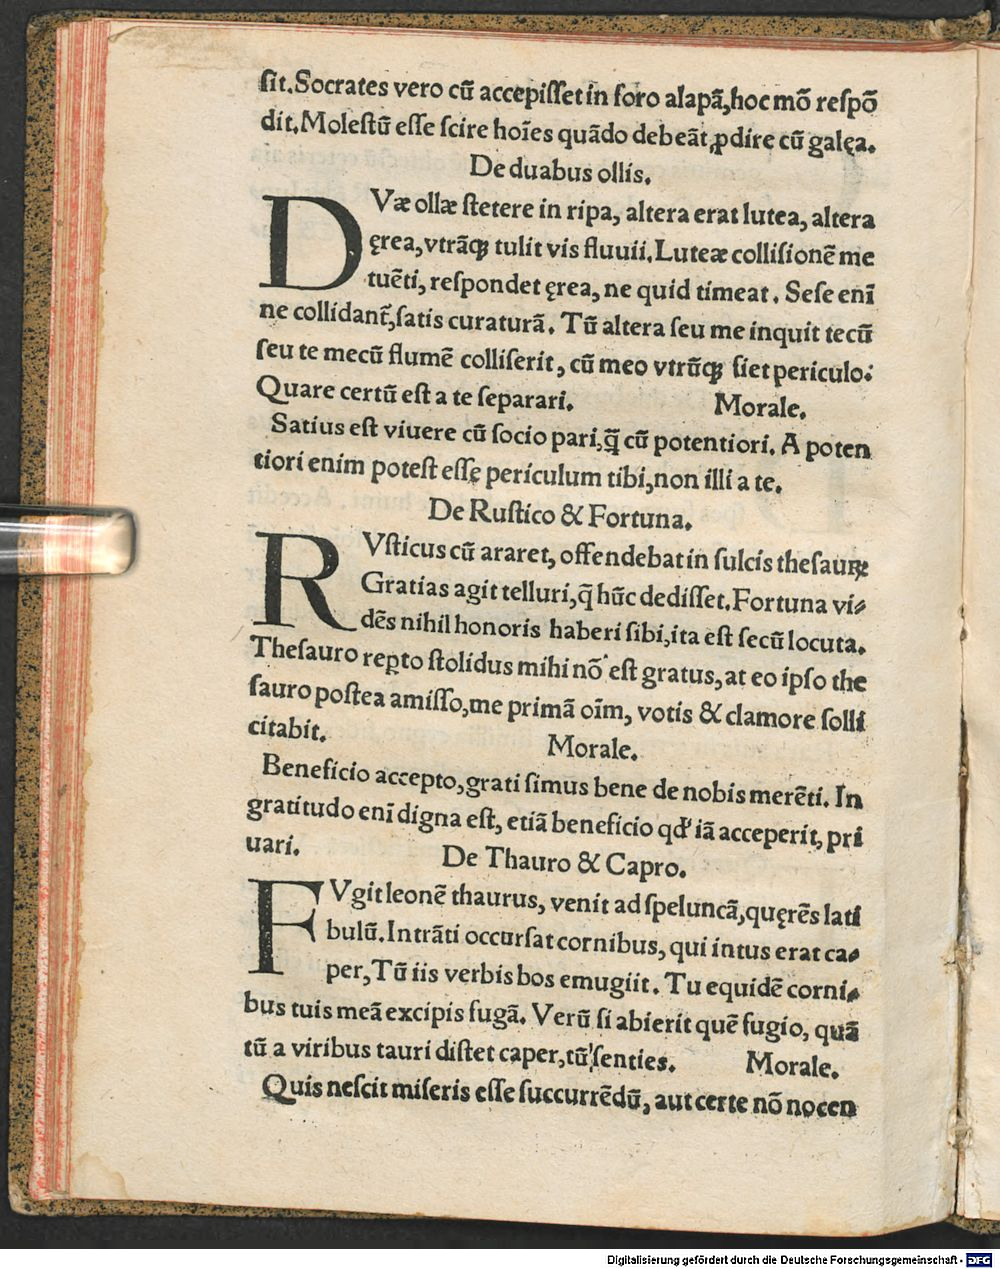 ſit.Socrates vero cū accepiſſet in foro alapā,hoc mō reſpō
dit.Moleſtū eſſe ſcire hoīes quādo debeāt ꝓdire cū galęa.
De duabus ollis.
DVæ ollæ ſtetere in ripa, altera erat lutea, altera
ęrea,vtrāqꝫ tulit vis fluuii.Luteæ colliſionē me
tuēti, reſpondet ęrea, ne quid timeat. Seſe enī
ne collidant᷑,ſatis curaturā. Tū altera ſeu me inquit tecū
ſeu te mecū flumē colliſerit, cū meo vtrūqꝫ fiet periculo:
Quare certū eſt a te ſeparari. Morale.
Satius eſt viuere cū ſocio pari,q̄ cū potentiori. A poten
tiori enim poteſt eſſę periculum tibi,non illi a te.
De Ruſtico & Fortuna.
RVſticus cū araret, offendebat in ſulcis theſauꝝ
Gratias agit telluri,q̄ hūc dediſſet.Fortuna vi⸗
dēs nihil honoris haberi ſibi,ita eſt ſecū locuta.
Theſauro reꝑto ſtolidus mihi nō eſt gratus,at eo ipſo the
ſauro poſtea amiſſo,me primā oīm, votis & clamore ſolli
citabit. Morale.
Beneficio accepto,grati ſimus bene de nobis merēti. In
gratitudo enī digna eſt, etiā beneficio qd' iā acceperit, pri
uari. De Thauro & Capro.
FVgit leonē thaurus, venit ad ſpeluncā,quęrēs lati
bulū.Intrāti occurſat cornibus, qui intus erat ca⸗
per,Tū iis verbis bos emugiit. Tu equidē corni⸗
bus tuis meā excipis fugā. Verū ſi abierit quē fugio, quā
tū a viribus tauri diſtet caper,tū ſenties. Morale.
Quis neſcit miſeris eſſe ſuccurrēdū, aut certe nō nocen
Digitalisierung gefördert durch die Deutsche Forschungsgemeinschaft - DFG